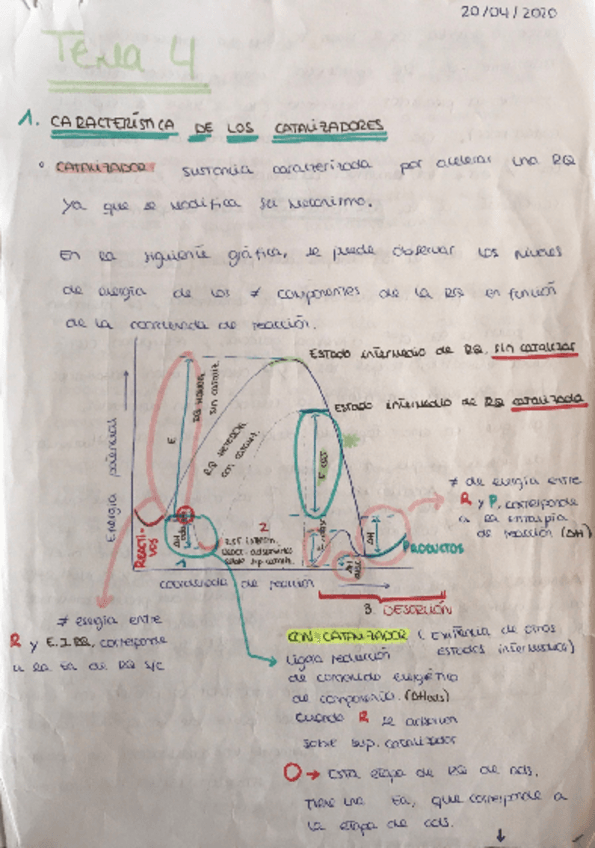 20/04/2020
Tema 4
1. CARACTERÍSTICA DE LOS CATALIZADORES
CATALIZADOR: sustancia caracterizada por acelerar una RQ
ya que se modifica su mecanismo.
En la siguiente gráfica, se puede observar los niveles
de energía de los ≠ componentes de la RQ en función
de la coordenada de reacción.
Estado intermedio de RQ, sin catalizar
Estado intermedio de RQ catalizada
Energía potencial
E
RQ
sin cataliz.
RQ
con cataliz.
≠ de energía entre
R y P, corresponde
a la entalpia
de reacción (ΔH)
REACTIVOS
ΔH
1
2
ΔH
PRODUCTOS
coordenada de reacción
3. DESORCIÓN
≠ energía entre
R y E.I RQ, corresponde
a la Ea de RQ s/c
CON CATALIZADOR (existencia de otros
estados intermedios)
Ligera reducción
de contenido energético
de compuesto. (ΔHads)
cuando R se adsorben
sobre sup. catalizador
O → Esta etapa de RQ de ads.
Tiene una Ea, que corresponde a
la etapa de ads.
↓